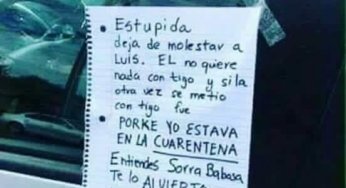 • Estupida
deja de molestar a
LUIS. EL no quiere
nada con tigo y si la
otra vez se metio
con tigo fue
• PORKE YO ESTAVA
EN LA CUARENTENA
Entiendes Sorra Babasa
Te lo ALVIERTO